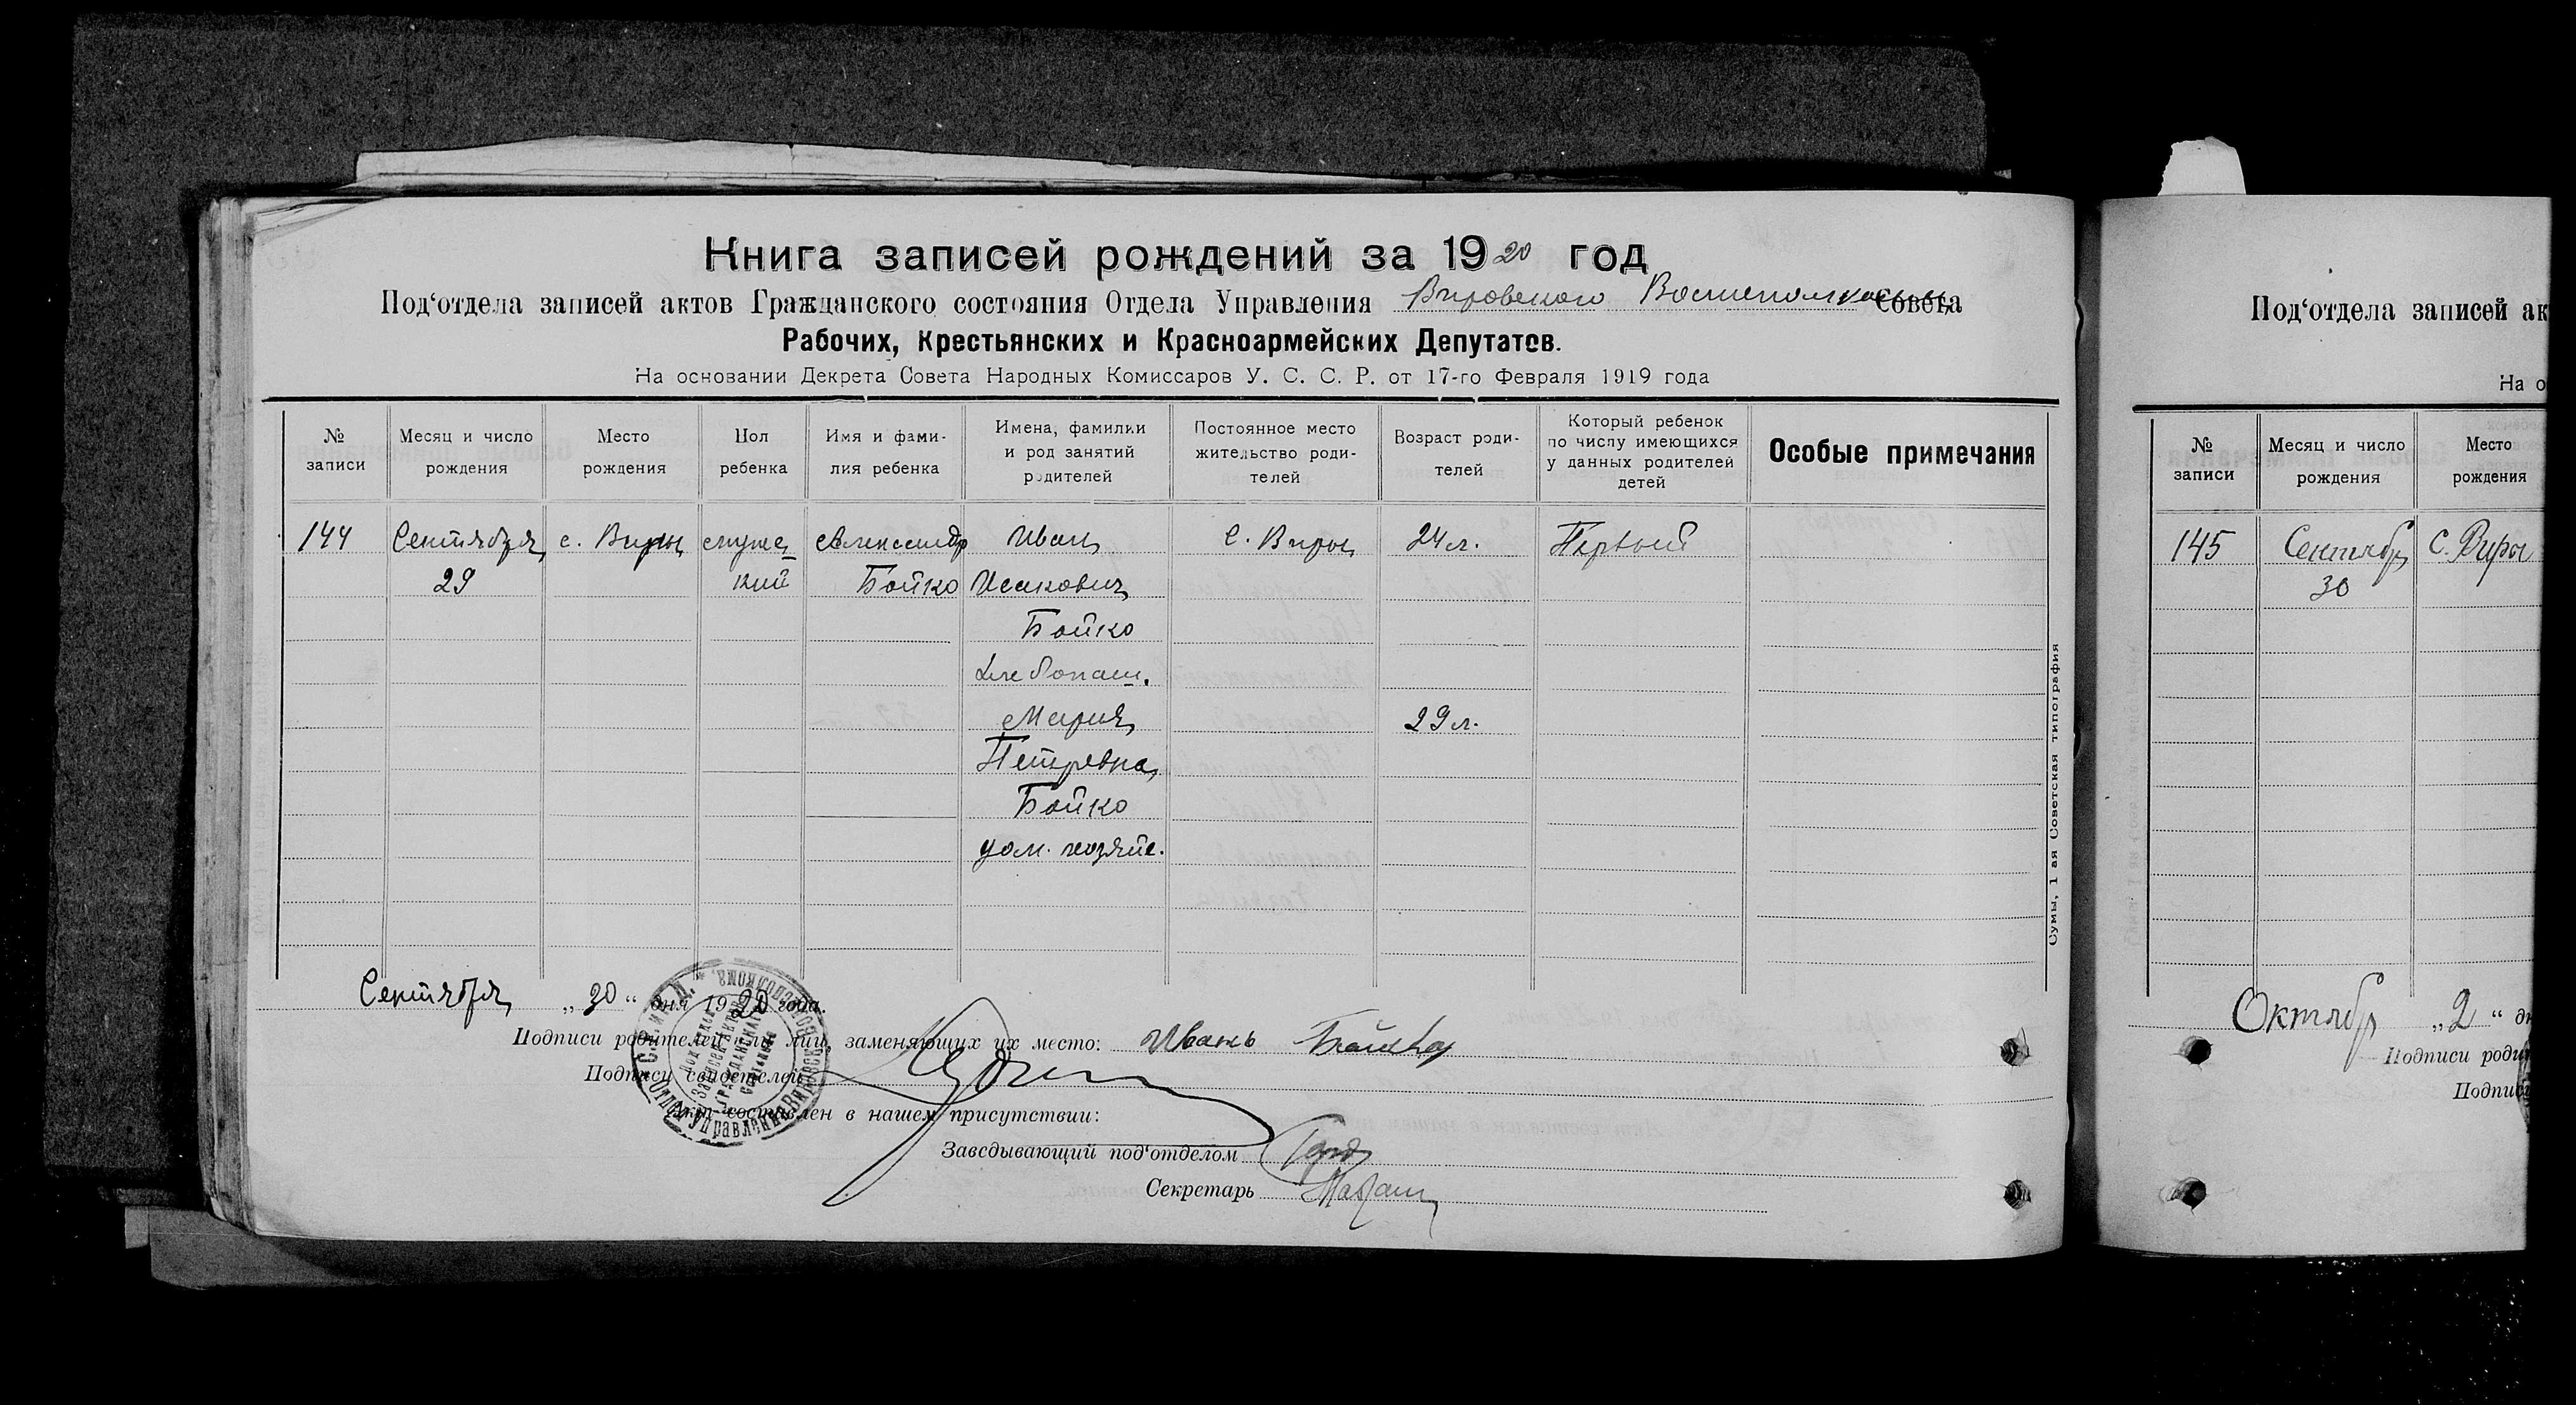 Книга записей рождений за 1920 год
Под‘отдела записей актов Гражданского состояния Отдела Управления Вировского Совета
Рабочих, Крестьянских и Красноармейских Депутатов.
На основании Декрета Совета Народных Комиссаров У. С. С. Р. от 17-го Февраля 1919 года
№ записи
Месяц и число рождения
Место рождения
Пол ребенка
Имя и фами-
лия ребенка
Имена, фамилии
и род занятий
родителей
Постоянное место
жительство роди-
телей
Возраст роди-
телей
Который ребенок
по числу имеющихся
у данных родителей
детей
Особые примечания
144 Сентября с. Виры мужес Александр Иван с. Виры 24 л. Первый
29 кий Бойко Исакович
Бойко
хлебопаш.
Мария 29 л.
Петровна
Бойко
дом. хозяйс.
Сумы, 1 ая Советская типография
Сентября „30“ дня 1920 года.
Подписи родителей или лиц, заменяющих их место: Иванъ Бойко
Подписи свидетелей
Акт составлен в нашем присутствии:
Заведывающий под‘отделом
Секретарь
Под‘отдела записей ак
На о
№ записи
Месяц и число рождения
Место рождения
145 Сентябр с. Виры
30
Октябр „2“ дн
Подписи роди
Подпис